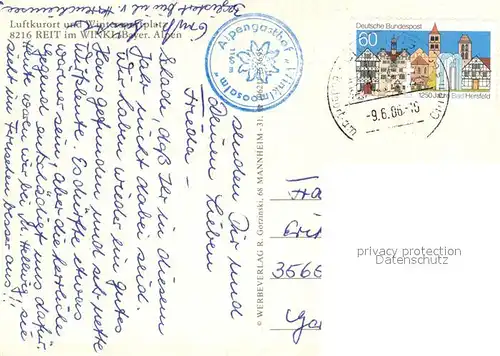 Luftkurort und Wintersportplatz
8216 REIT im WINKL/Bayer. Alpen
Alpengasthof "Winklmoosalm"
1160 m
Deutsche Bundespost
60
1250 Jahre Bad Hersfeld
-9.6.86.-16
Schade, daß Ihr in diesem
Jahr nicht dabei seid.
Wir haben wieder ein gutes
Haus gefunden und sehr nette
Wirtsleute. Es dürfte etwas
wärmer sein, aber die herrliche
Gegend entschädigt uns dafür.
Heute waren wir bei M. Hellwig, sie
sieht im Fernsehen besser aus!!
senden Dir und
Deinen Lieben
Frieda
© WERBEVERLAG R. Gorzinski, 68 MANNHEIM - 31,
3566
privacy protection
Datenschutz